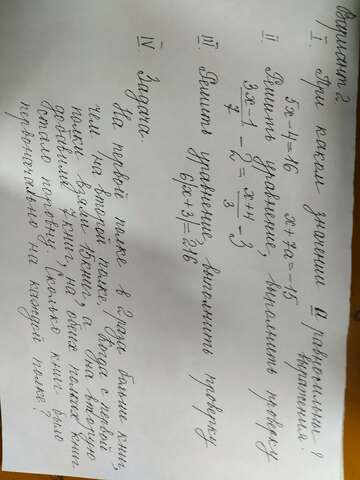 Вариант 2.
I. При каком значении а равносильны
выражения?
5x-4=16 x+7a=-15
II Решить уравнение, выполнить проверку
3x-1/7 - 2 = x+4/3 - 3
III. Решить уравнение, выполнить проверку
6|x+3|=216
IV Задача.
На первой полке в 2 раза больше книг,
чем на второй полке. Когда с первой
полки взяли 15 книг, а на вторую
добавили 7 книг, на обеих полках книг
стало поровну. Сколько книг было
первоначально на каждой полке?